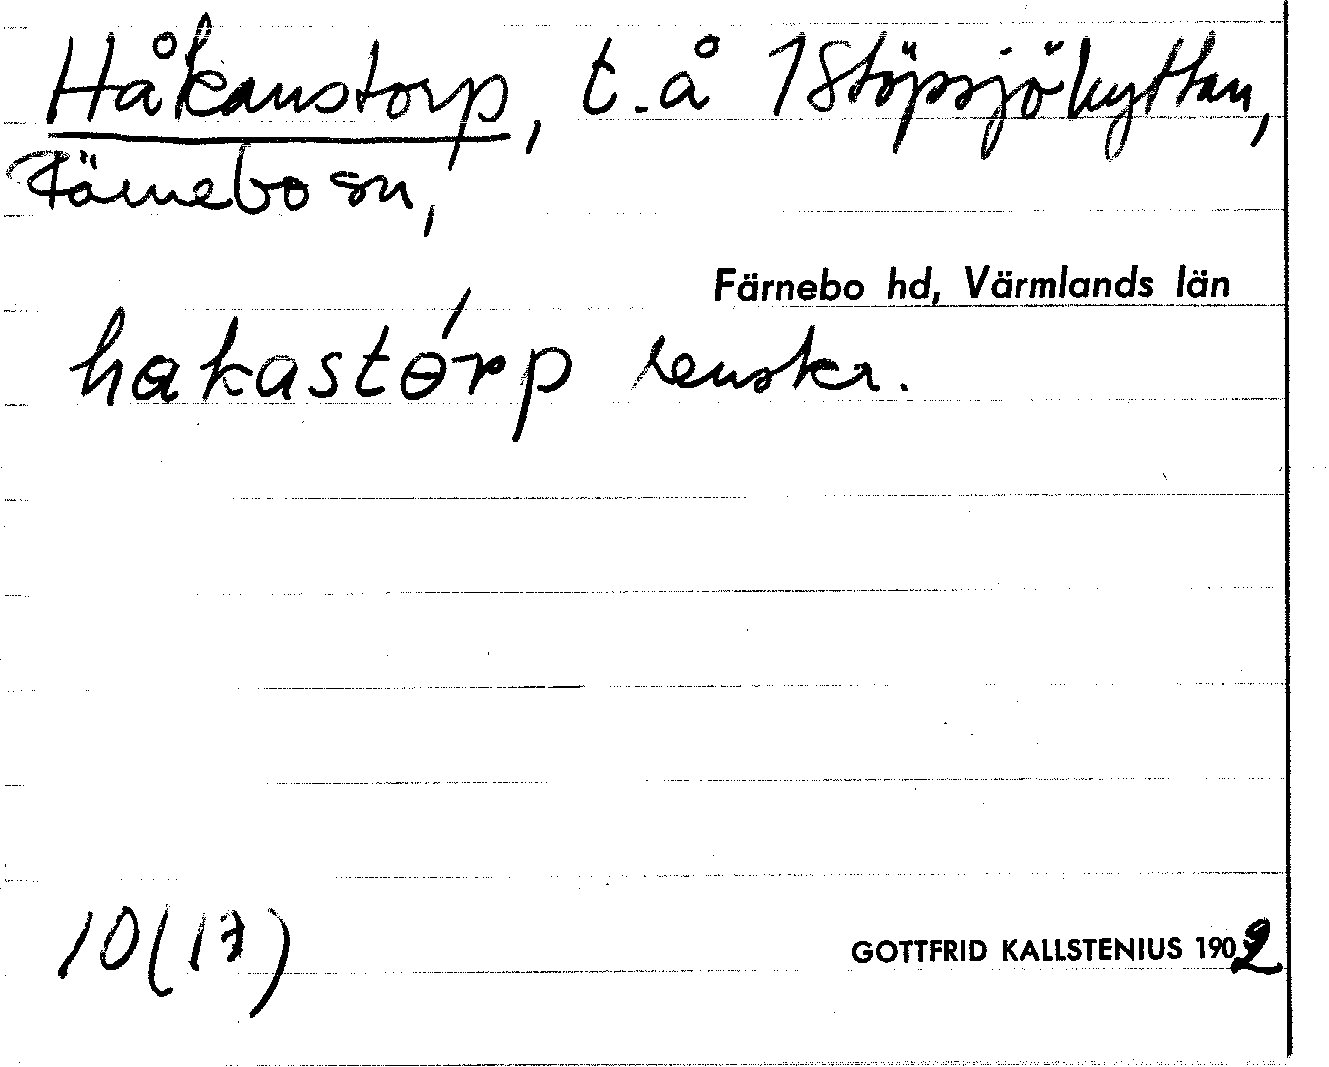 Håkanstorp, t. å 1 Stöpsjöhyttan,
Färnebo sn,
Färnebo hd, Värmlands län
hakastɵ́rp renskr.
10(17)
GOTTFRID KALLSTENIUS 1902